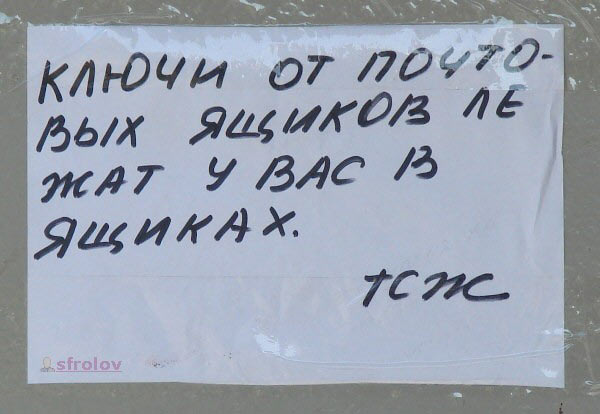 КЛЮЧИ ОТ ПОЧТО-
ВЫХ ЯЩИКОВ ЛЕ
ЖАТ У ВАС В
ЯЩИКАХ.
ТСЖ
sfrolov